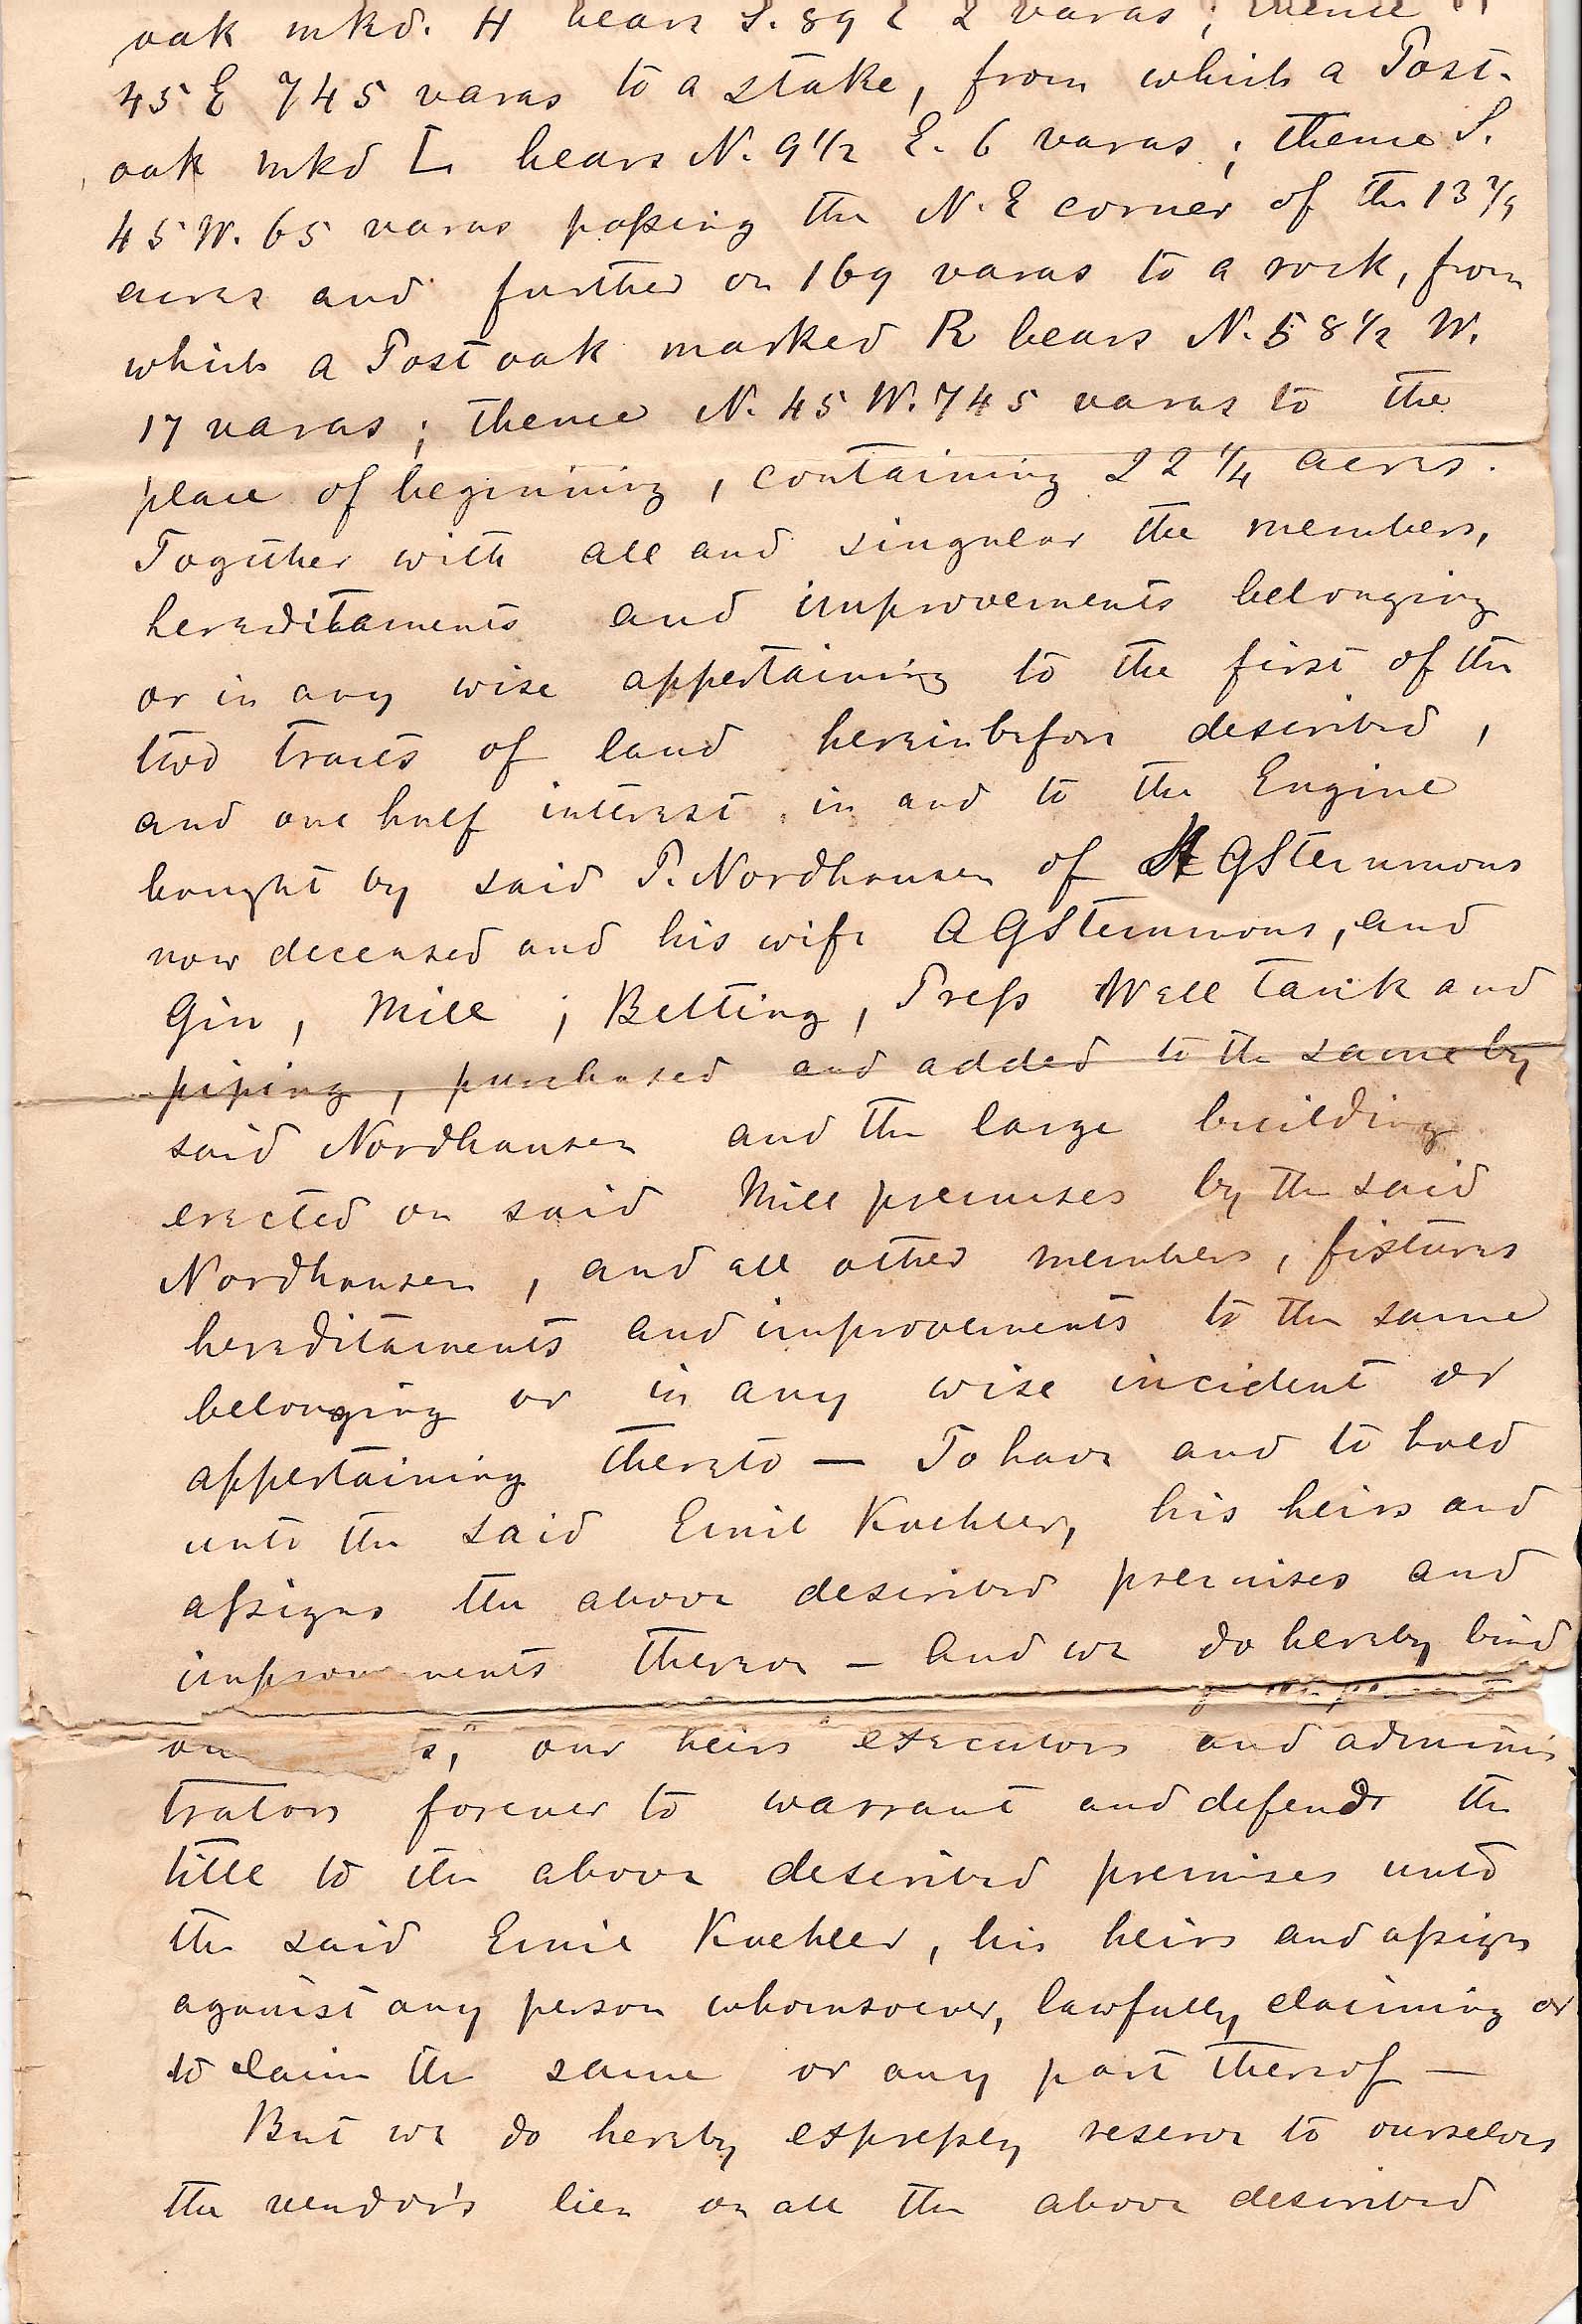 oak mkd. H bears S. 89 E 2 varas ; thence
45 E 745 varas to a stake, from which a Post-
oak mkd L bears N. 9 1/2 E. 6 varas ; thence S.
45 W. 65 varas passing the N. E corner of the 13 7/9
acres and further on 169 varas to a rock, from
which a Post oak marked R bears N. 58 1/2 W.
17 varas ; thence N. 45 W. 745 varas to the
place of beginning, containing 22 1/4 acres.
Together with all and singular the members,
hereditaments and improvements belonging
or in any wise appertaining to the first of the
two tracts of land hereinbefore described,
and one half interest in and to the Engine
bought by said P. Nordhausen of A G Stemmons
now deceased and his wife A G Stemmons, and
Gin, Mill ; Belting, Press Well tank and
piping, purchased and added to the same by
said Nordhausen and the large building
erected on said Mill premises by the said
Nordhausen, and all other members, fixtures
hereditaments and improvements to the same
belonging or in any wise incident or
appertaining thereto — To have and to hold
unto the said Emil Koehler, his heirs and
assigns the above described premises and
improvements thereon — and we do hereby bind
our heirs executors and adminis
trators forever to warrant and defend the
title to the above described premises unto
the said Emil Koehler, his heirs and assigns
against any person whomsoever, lawfully claiming or
to claim the same or any part thereof —
But we do hereby expressly reserve to ourselves
the vendor's lien on all the above described